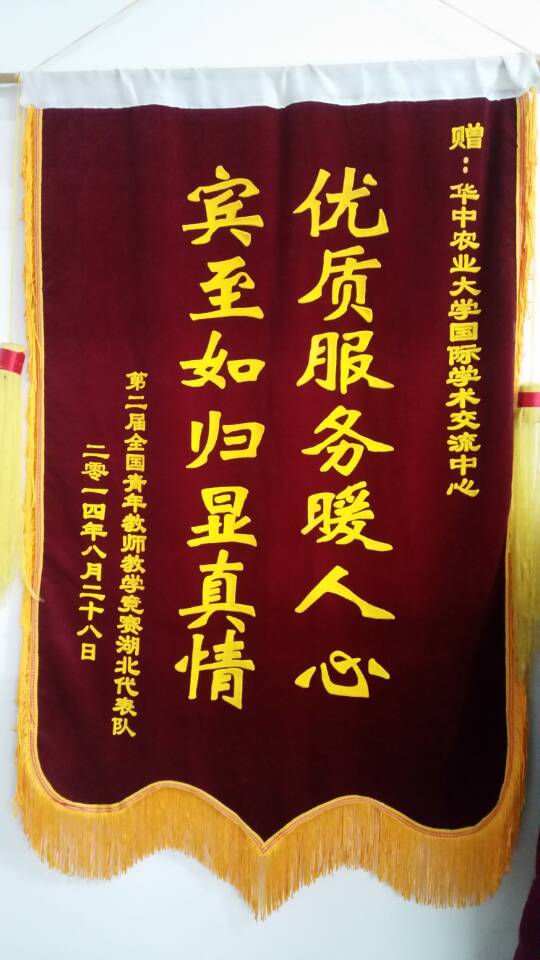 赠：华中农业大学国际学术交流中心
优质服务暖人心
宾至如归显真情
第二届全国青年教师教学竞赛湖北代表队
二零一四年八月二十八日